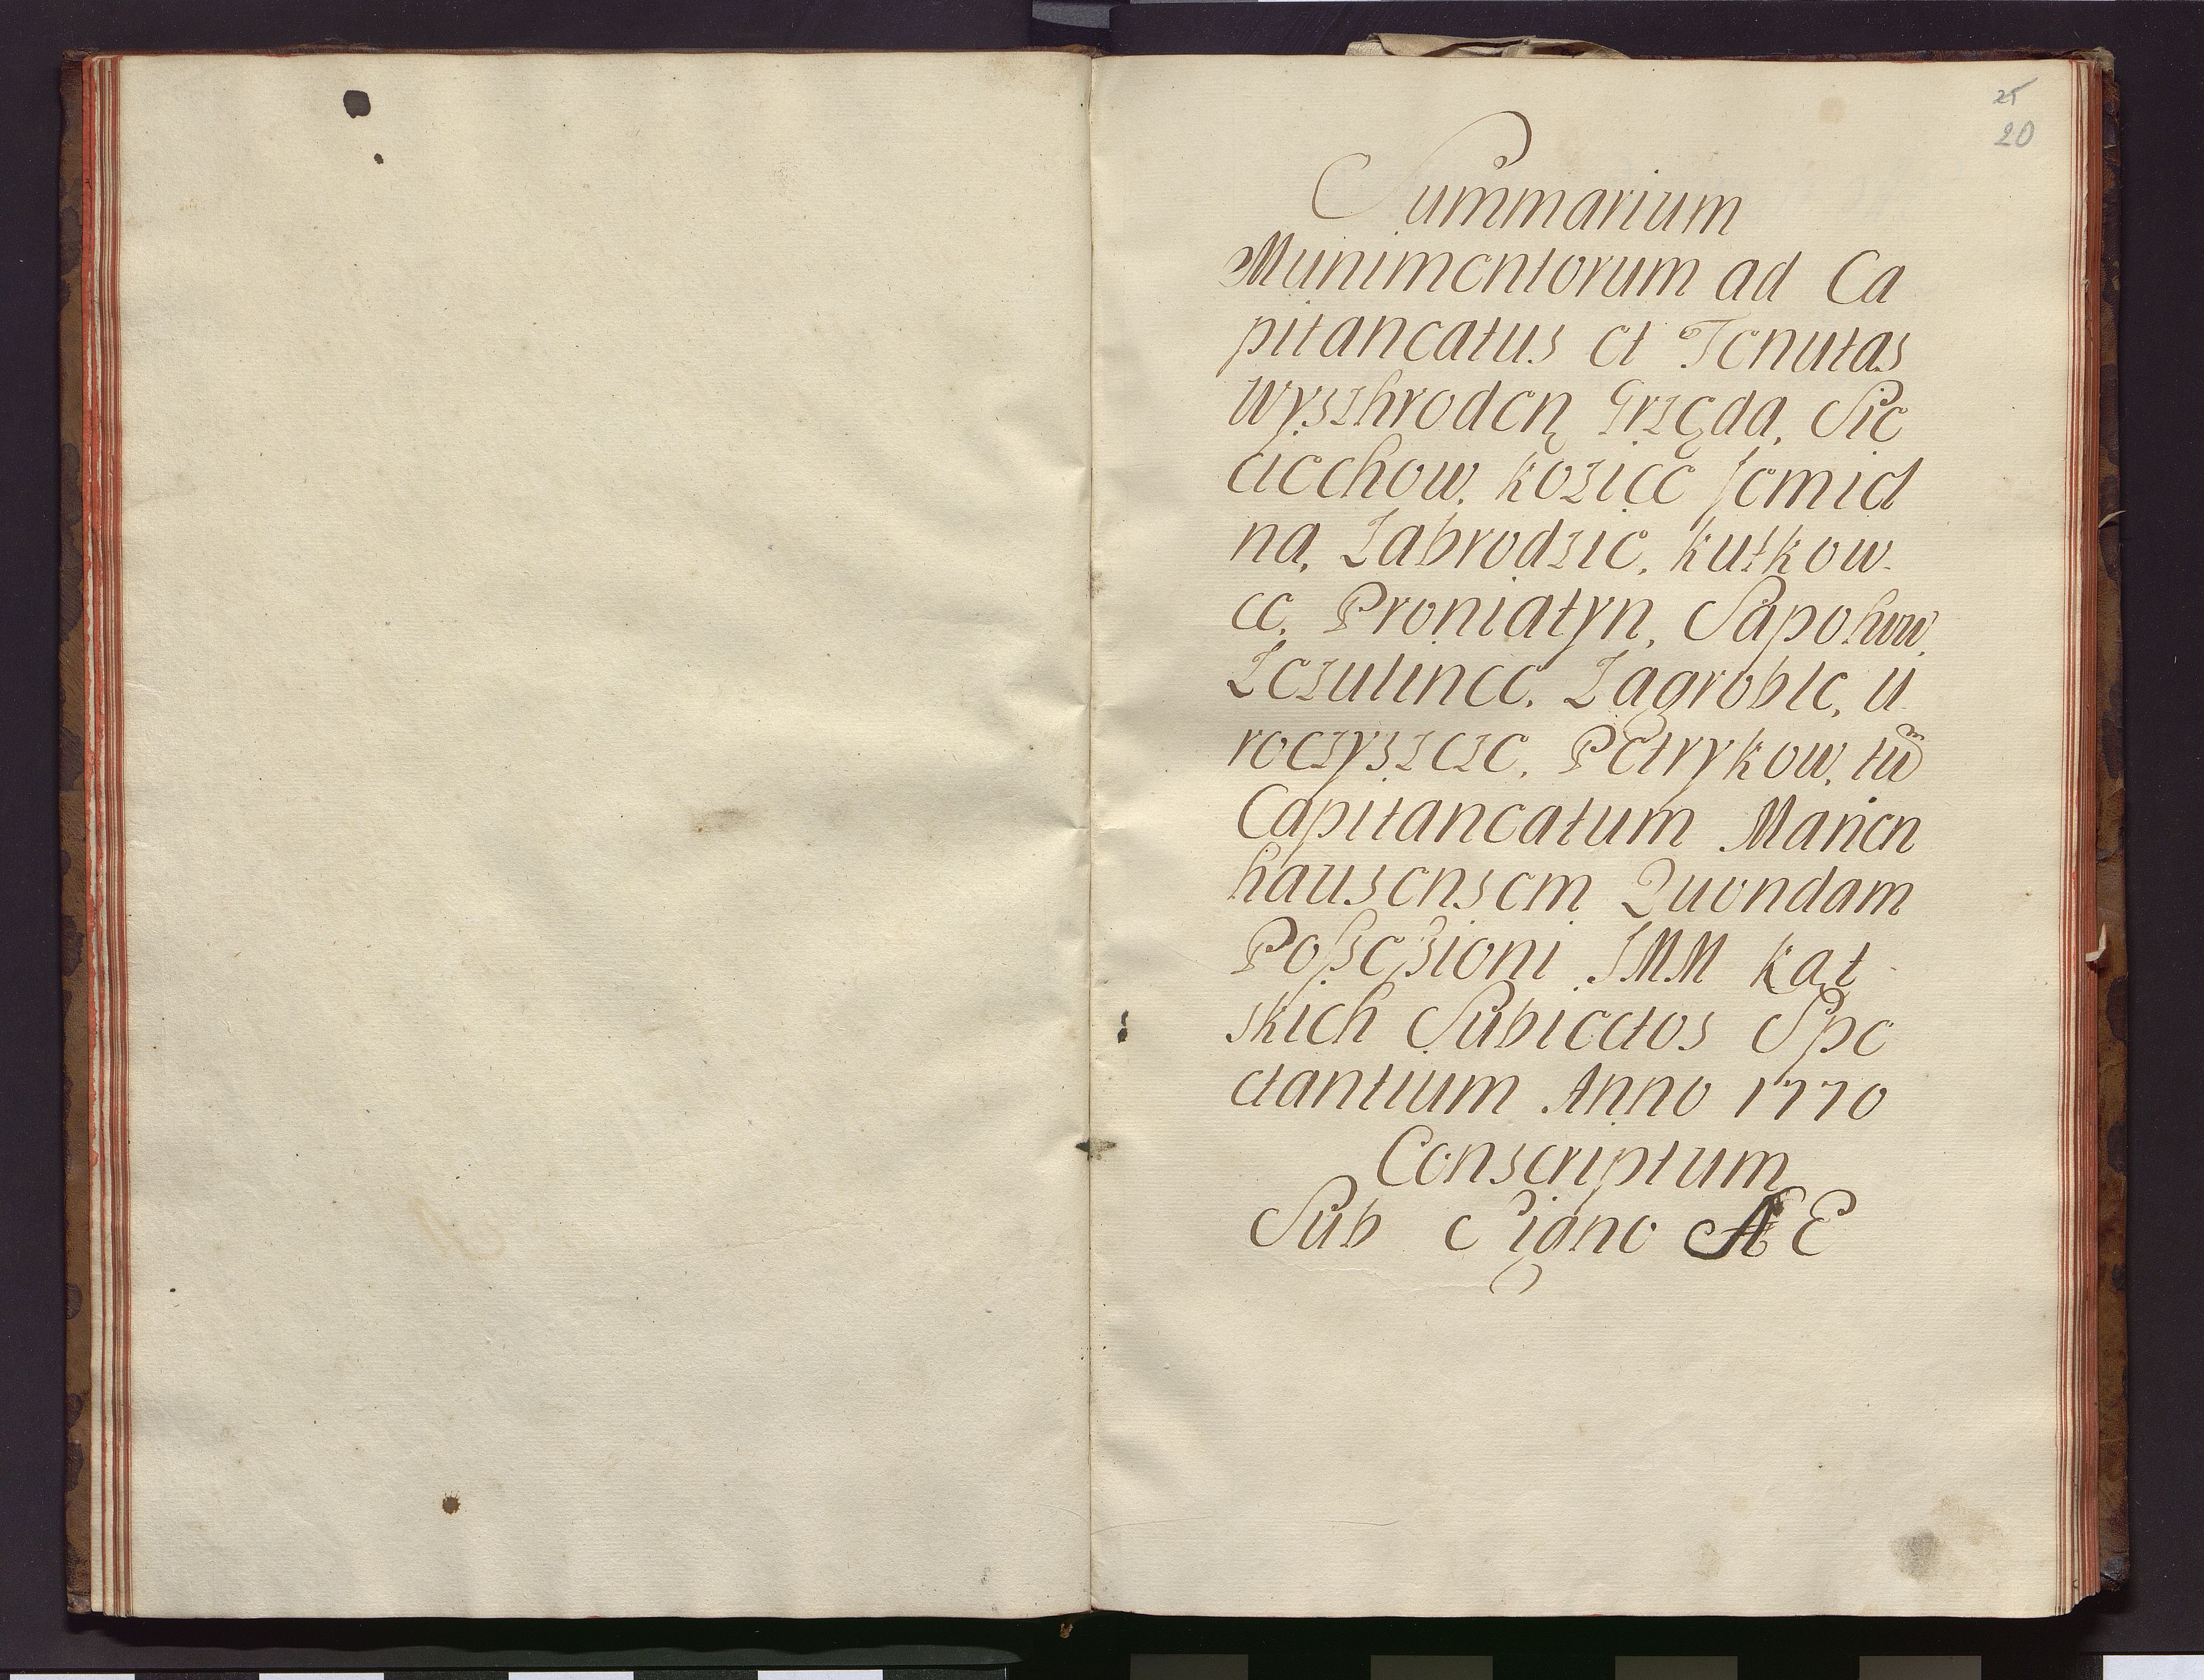 25
20
Summarium
Munimentorum ad Ca
pitaneatus et Tenutas
Wyszhroden, Grzęda, Sie
ciechow, Kozice Jemiel
na, Zabrodzie, Kutkow-
ce, Proniatyn, Sapohow,
Zczulince, Zagroble, U-
roczyszcze, Petrykow, tũ
Capitaneatum Marien
hausensem Quondam
Poßeßioni JMM Kąt-
skich Subiectos Spe
ctantium Anno 1770
Conscriptum
Sub Signo AE